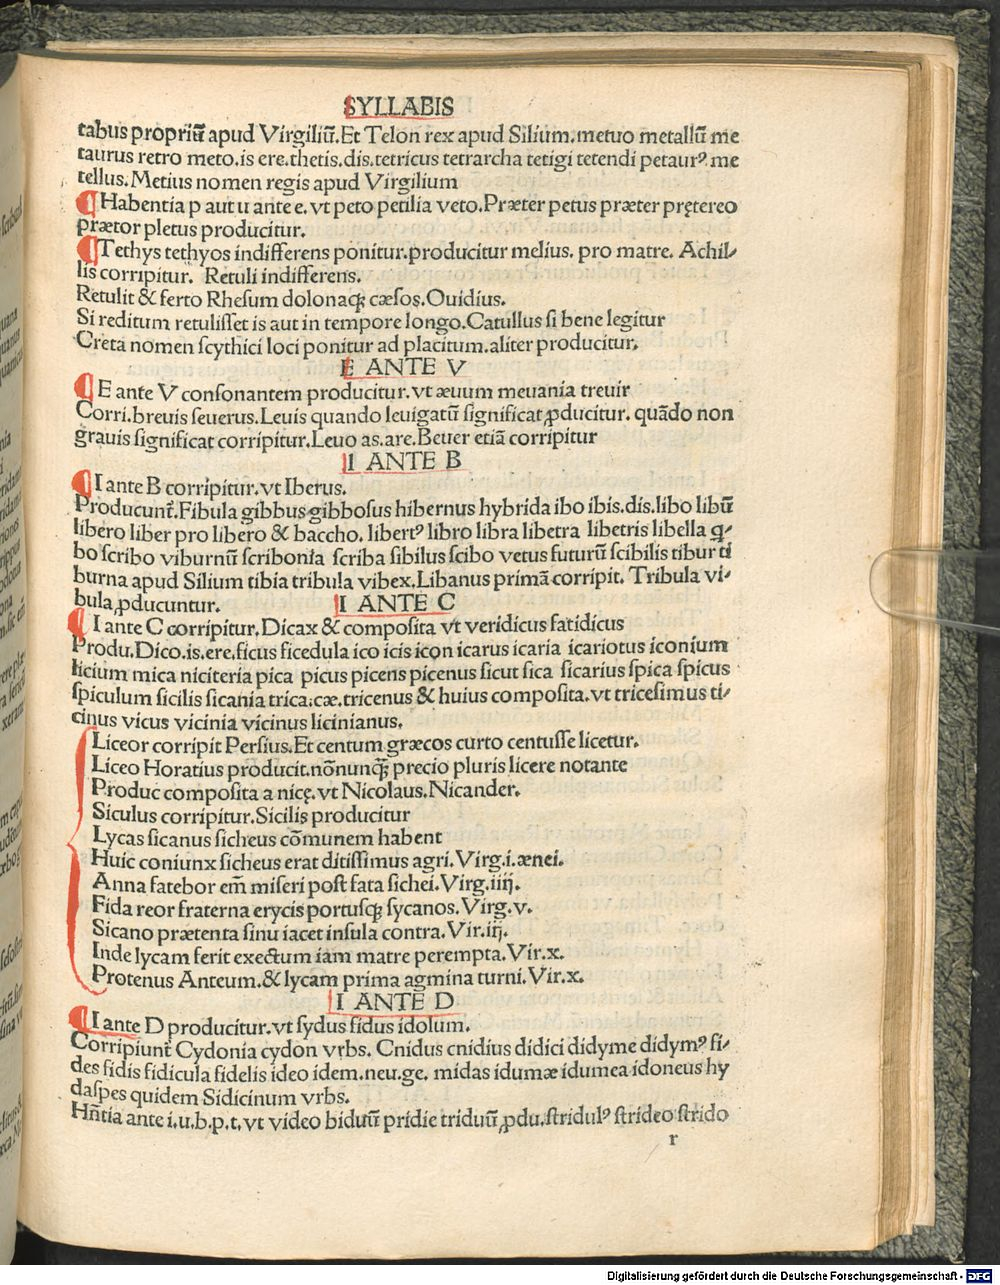 SYLLABIS
tabus propriū apud Virgiliū. Et Telon rex apud Silium. metuo metallū me
taurus retro meto. is ere. thetis. dis. tetricus tetrarcha tetigi tetendi petaurꝰ me
tellus. Metius nomen regis apud Virgilium
¶ Habentia p aut u ante e. vt peto petilia veto. Præter petus præter prętereo
prætor pletus producitur.
¶ Tethys tethyos indifferens ponitur. producitur melius. pro matre. Achil-
lis corripitur. Retuli indifferens.
Retulit & ferto Rhesum dolonaqꝫ cæsos. Ouidius.
Si reditum retulisset is aut in tempore longo. Catullus si bene legitur
Creta nomen scythici loci ponitur ad placitum. aliter producitur.
E ANTE V
¶ E ante V consonantem producitur. vt æuum meuania treuir
Corri. breuis seuerus. Leuis quando leuigatū significat ꝓducitur. quādo non
grauis significat corripitur. Leuo as. are. Beuer etiā corripitur
I ANTE B
¶ I ante B corripitur. vt Iberus.
Producunt̄. Fibula gibbus gibbosus hibernus hybrida ibo ibis. dis. libo libū
libero liber pro libero & baccho. libertꝰ libro libra libetra libetris libella q-
bo scribo viburnū scribonia scriba sibilus scibo vetus futurū scibilis tibur ti
burna apud Silium tibia tribula vibex. Libanus primā corripit. Tribula vi-
bula ꝓducuntur. I ANTE C
¶ I ante C corripitur. Dicax & composita vt veridicus fatidicus
Produ. Dico. is. ere. ficus ficedula ico icis icon icarus icaria icariotus iconium
licium mica niciteria pica picus picens picenus sicut sica sicarius spica spicus
spiculum sicilis sicania trica: cæ. tricenus & huius composita. vt tricesimus ti-
cinus vicus vicinia vicinus licinianus.
Liceor corripit Persius. Et centum græcos curto centusse licetur.
Liceo Horatius producit. nōnunqꝫ precio pluris licere notante
Produc composita a nicę. vt Nicolaus. Nicander.
Siculus corripitur. Sicilis producitur
Lycas sicanus sicheus cōmunem habent
Huic coniunx sicheus erat ditissimus agri. Virg. i. ænei.
Anna fatebor em̄ miseri post fata sichei. Virg. iiij.
Fida reor fraterna erycis portusqꝫ sycanos. Virg. v.
Sicano prætenta sinu iacet insula contra. Vir. iij.
Inde lycam ferit exectum iam matre perempta. Vir. x.
Protenus Anteum. & lycam prima agmina turni. Vir. x.
I ANTE D
¶ I ante D producitur. vt sydus fidus idolum.
Corripiunt̄ Cydonia cydon vrbs. Cnidus cnidius didici didyme didymꝰ fi-
des fidis fidicula fidelis ideo idem. neu. ge. midas idumæ idumea idoneus hy
daspes quidem Sidicinum vrbs.
Hn̄tia ante i. u. b. p. t. vt video biduū pridie triduū ꝓdu. stridulꝰ strideo strido
r
Digitalisierung gefördert durch die Deutsche Forschungsgemeinschaft - DFG